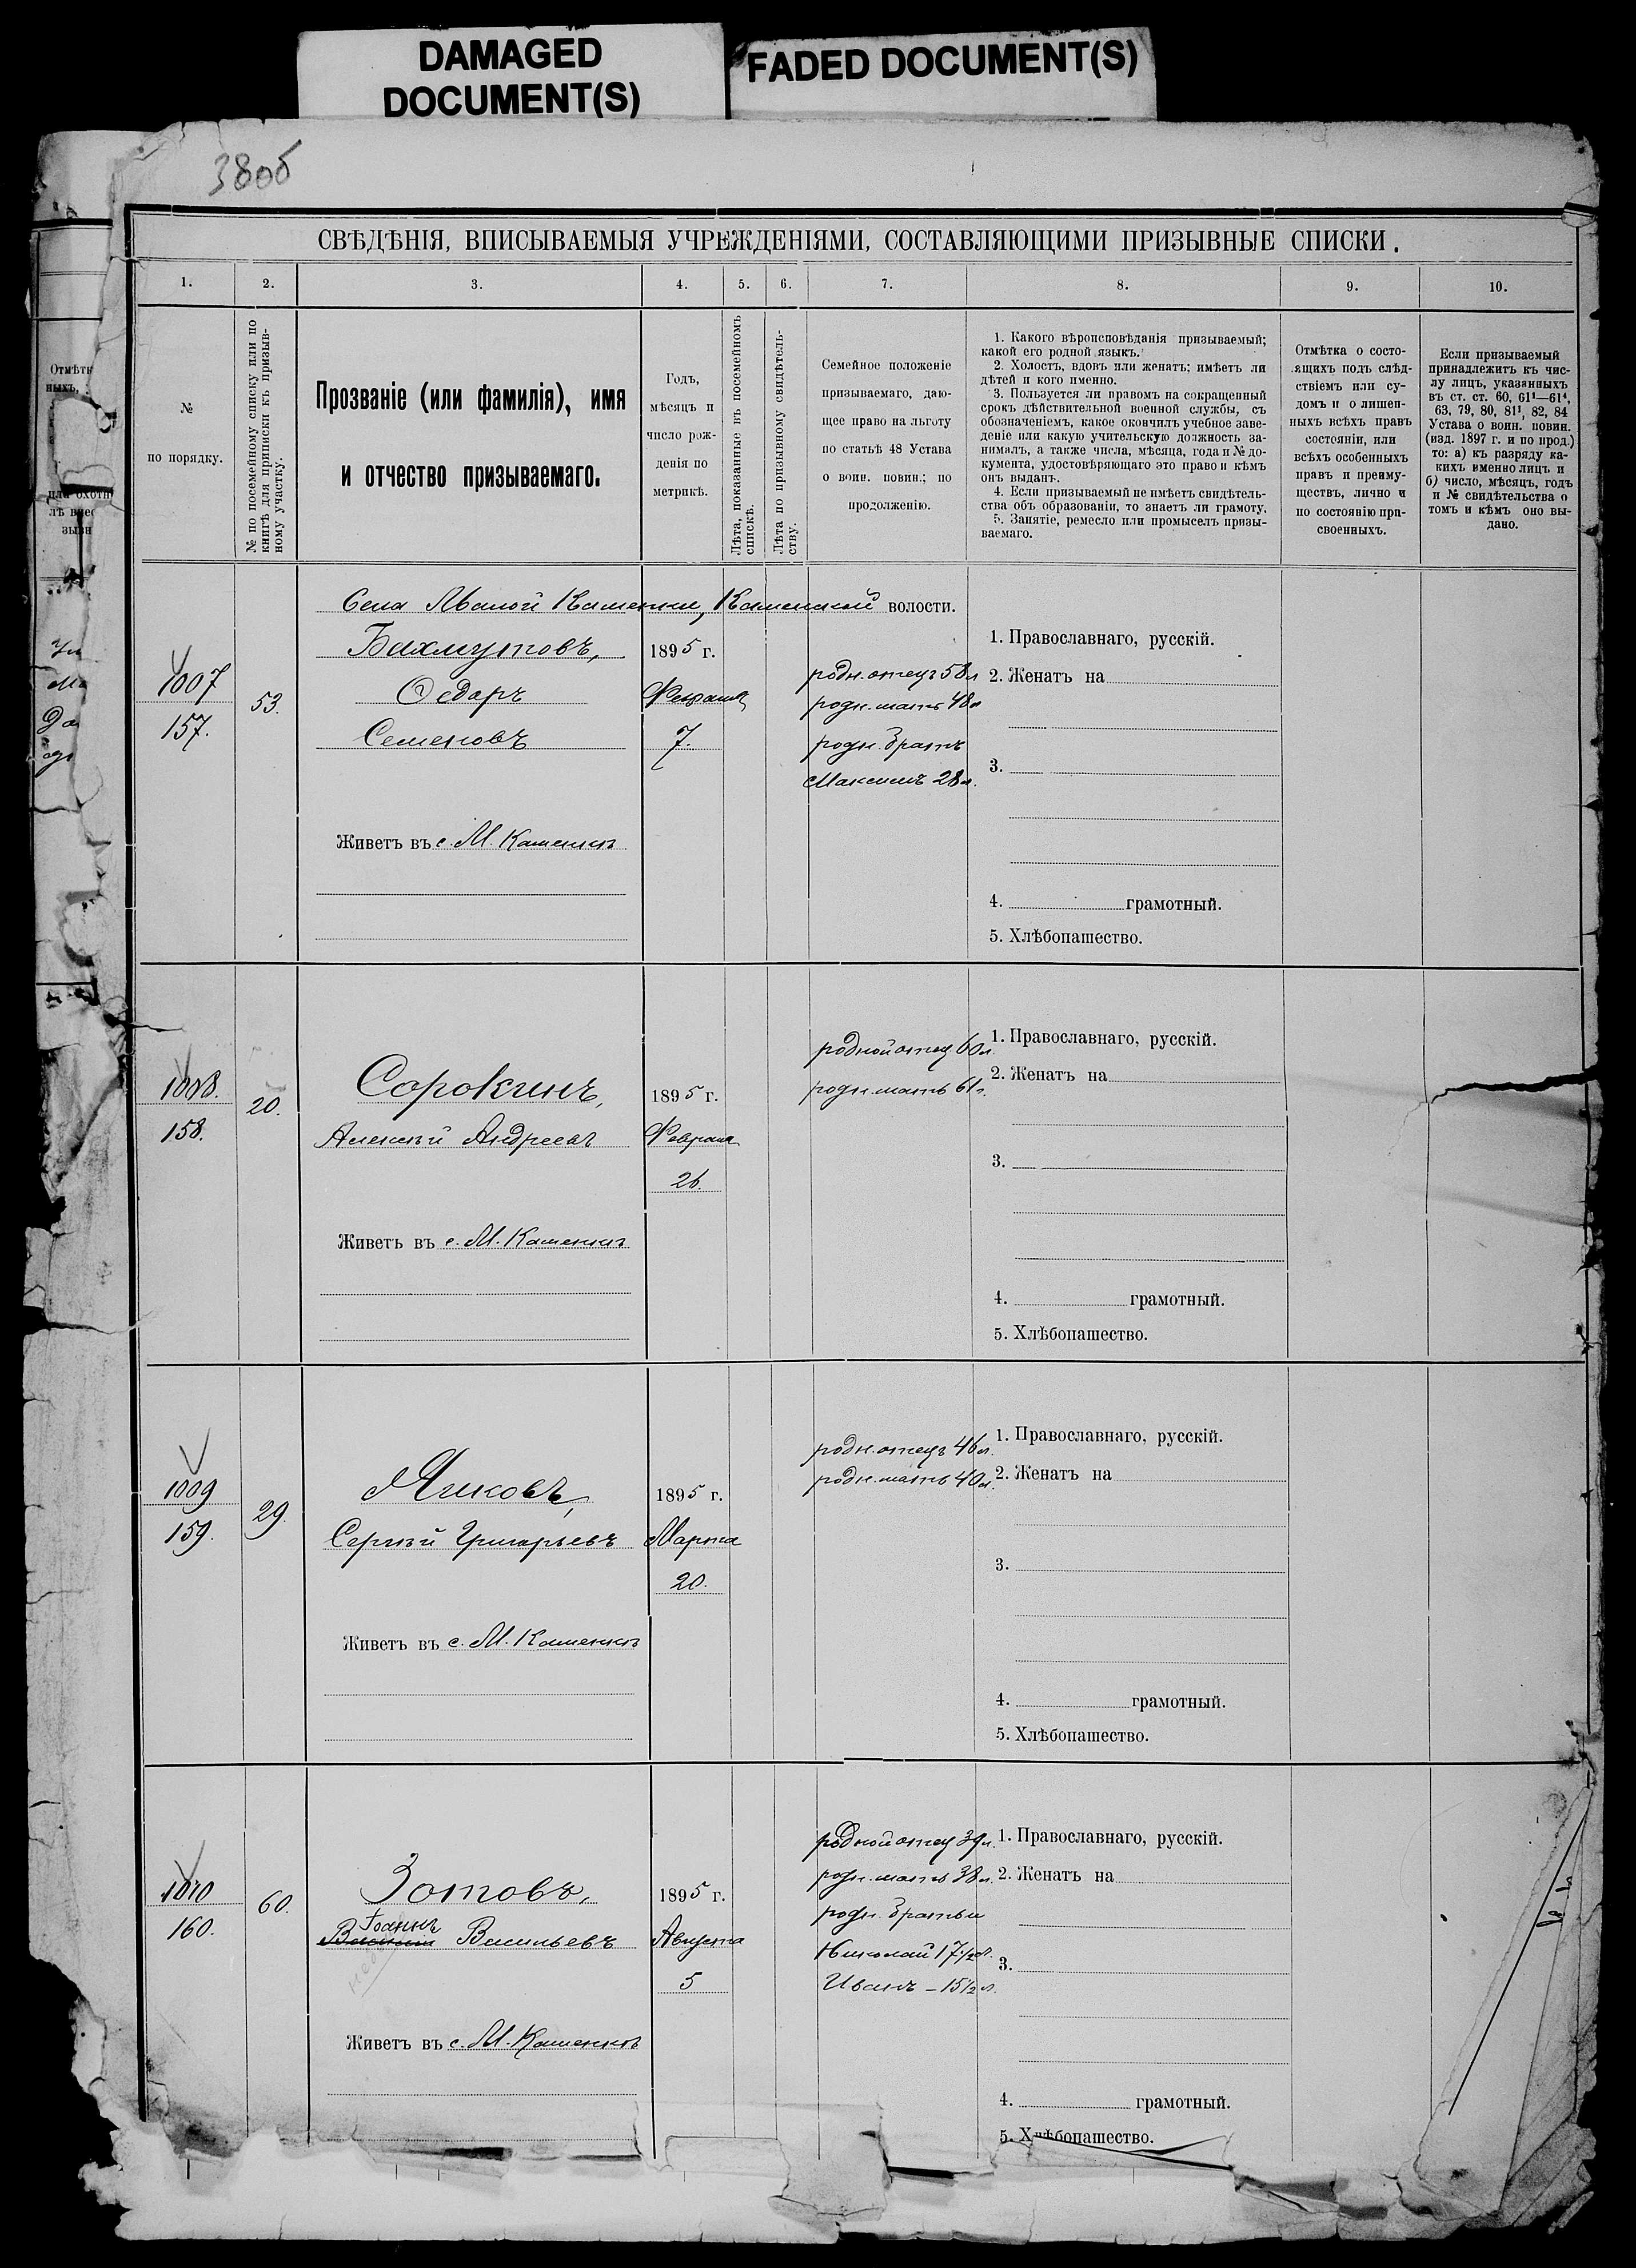 DAMAGED
DOCUMENT(S)
FADED DOCUMENT(S)
38об
СВѢДѢНІЯ, ВПИСЫВАЕМЫЯ УЧРЕЖДЕНІЯМИ, СОСТАВЛЯЮЩИМИ ПРИЗЫВНЫЕ СПИСКИ.
1. 2. 3. 4. 5. 6. 7. 8. 9. 10.
№
по порядку.
№ по посемейному списку или по
книгѣ для приписки къ призыв-
ному участку.
Прозваніе (или фамилія), имя
и отчество призываемаго.
Годъ,
мѣсяцъ и
число рож-
денія по
метрикѣ.
Лѣта, показанные въ посемейномъ
спискѣ.
Лѣта по призывному свидѣтель-
ству.
Семейное положеніе
призываемаго, даю-
щее право на льготу
по статьѣ 48 Устава
о воин. повин.; по
продолженію.
1. Какого вѣроисповѣданія призываемый;
какой его родной языкъ.
2. Холостъ, вдовъ или женатъ; имѣетъ ли
дѣтей и кого именно.
3. Пользуется ли правомъ на сокращенный
срокъ дѣйствительной военной службы, съ
обозначеніемъ, какое окончилъ учебное заве-
деніе или какую учительскую должность за-
нималъ, а также числа, мѣсяца, года и № до-
кумента, удостовѣряющаго это право и кѣмъ
онъ выданъ.
4. Если призываемый не имѣетъ свидѣтель-
ства объ образованіи, то знаетъ ли грамоту.
5. Занятіе, ремесло или промыселъ призы-
ваемаго.
Отмѣтка о состо-
ящихъ подъ слѣд-
ствіемъ или су-
домъ и о лишен-
ныхъ всѣхъ правъ
состоянія, или
всѣхъ особенныхъ
правъ и преиму-
ществъ, лично и
по состоянію при-
своенныхъ.
Если призываемый
принадлежитъ къ чис-
лу лицъ, указанныхъ
въ ст. ст. 60, 61¹—61⁴,
63, 79, 80, 81¹, 82, 84
Устава о воин. повин.
(изд. 1897 г. и по прод.)
то: а) къ разряду ка-
кихъ именно лицъ и
б) число, мѣсяцъ, годъ
и № свидѣтельства о
томъ и кѣмъ оно вы-
дано.
Села Малой Каменки, Каменской волости.
1007
157.
53.
Бахмутовъ,
Ѳедоръ
Семеновъ
Живетъ въ с. М. Каменкѣ
1895 г.
Февраля
7.
родн. отецъ 58 л
родн. мать 48 л
родн. братъ
Максимъ 28 л.
1. Православнаго, русскій.
2. Женатъ на
3.
4. грамотный.
5. Хлѣбопашество.
1008.
158.
20.
Сорокинъ,
Алексѣй Андреевъ
Живетъ въ с. М. Каменкѣ
1895 г.
Февраля
26.
родной отец 60 л.
родн. мать 61 г.
1. Православнаго, русскій.
2. Женатъ на
3.
4. грамотный.
5. Хлѣбопашество.
1009
159.
29.
Сергѣй Григорьевъ
Живетъ въ с. М. Каменкѣ
1895 г.
Марта
20.
родн. отецъ 46 л.
родн. мать 40 л.
1. Православнаго, русскій.
2. Женатъ на
3.
4. грамотный.
5. Хлѣбопашество.
1010
160.
60.
Зотовъ,
Іоаннъ
Василій Васильевъ
Живетъ въ с. М. Каменкѣ
1895 г.
Августа
5
родной отец 39 л.
родн. мать 38 л.
родн. братья
Николай 17½ л.
Иванъ – 15½ л.
1. Православнаго, русскій.
2. Женатъ на
3.
4. грамотный.
5. Хлѣбопашество.